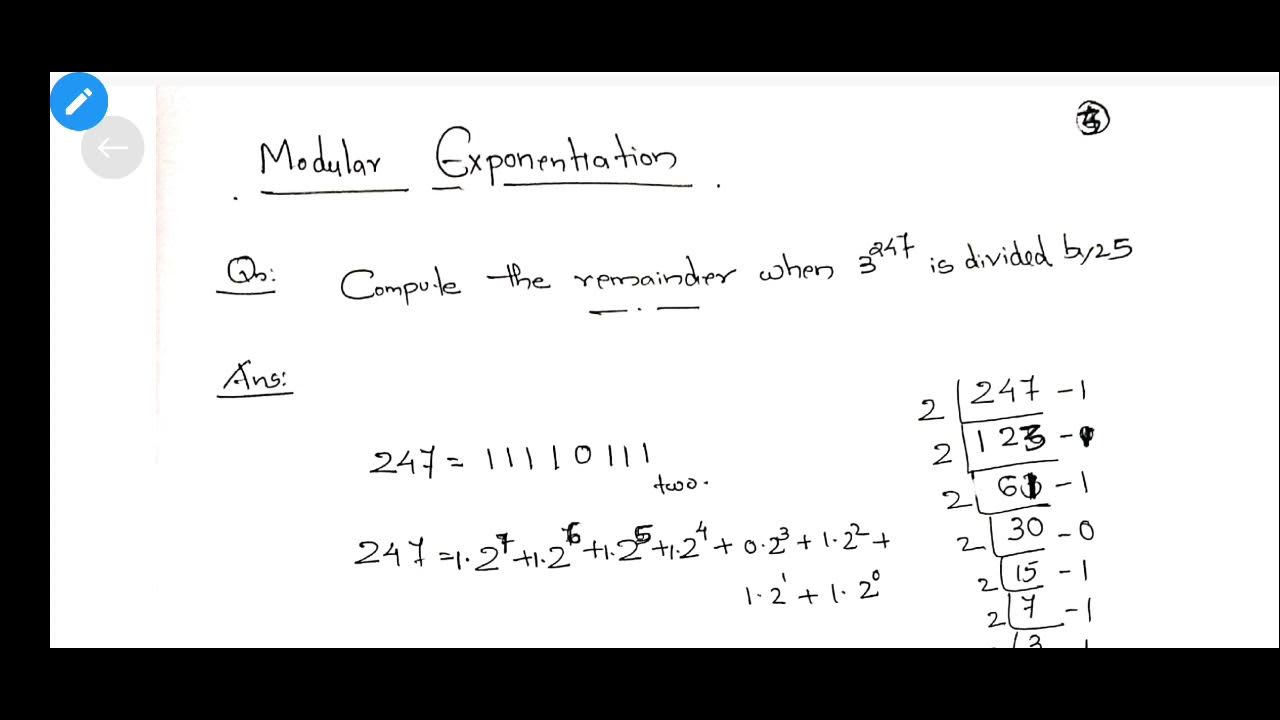 Modular Exponentiation
Qn: Compute the remainder when 3^247 is divided by 25
Ans:
247 = 11110111 two.
247 = 1·2^7 + 1·2^6 + 1·2^5 + 1·2^4 + 0·2^3 + 1·2^2 +
1·2^1 + 1·2^0
2 | 247 - 1
2 | 123 - 1
2 | 61 - 1
2 | 30 - 0
2 | 15 - 1
2 | 7 - 1